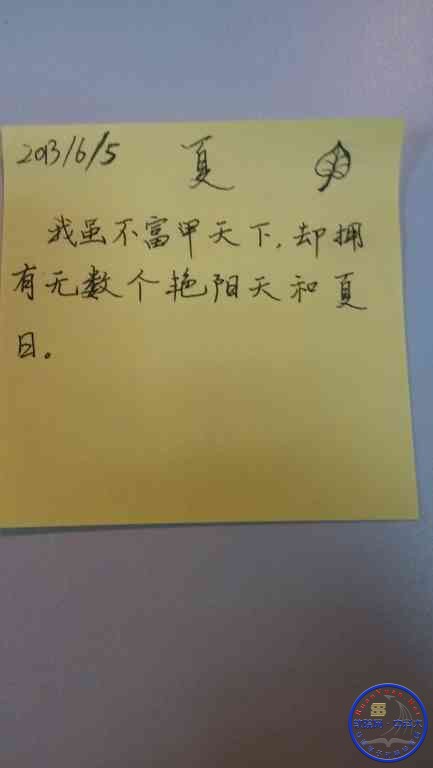 2013/6/5 夏
我虽不富甲天下,却拥
有无数个艳阳天和夏
日。